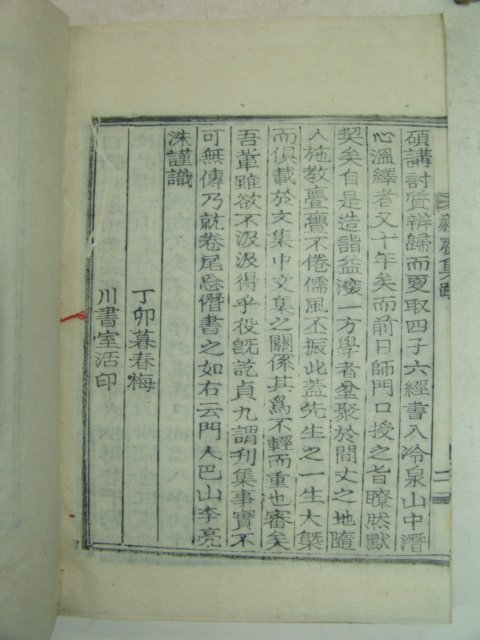 碩講討質辨歸而更取四子六經書入冷泉山中潛
心溫繹者又十年矣而前日師門口授之旨瞭然默
契矣自是造詣益深一方學者羣聚於間丈之地隨
人施教亹亹不倦儒風丕振此蓋先生之一生大槩
而俱載於文集中文集之關係其爲不輕而重也審矣
吾輩雖欲不汲汲得乎役旣訖貞九謂刊集事實不
可無傳乃就卷尾忘僭書之如右云門人巴山李亮
洙謹識
丁卯暮春梅
川書室活印